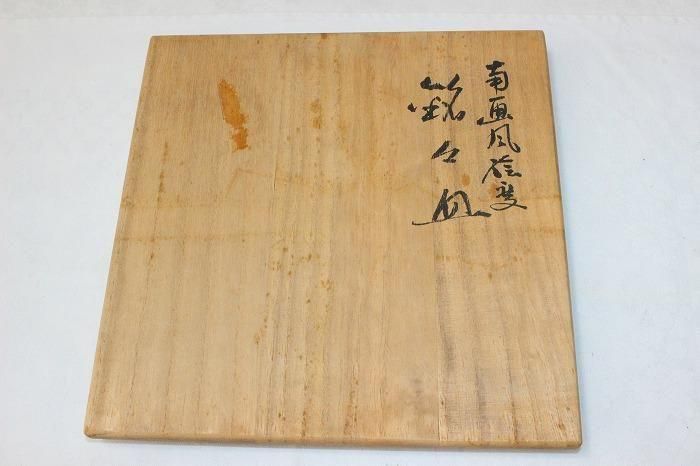 南画風絵変
銘々皿